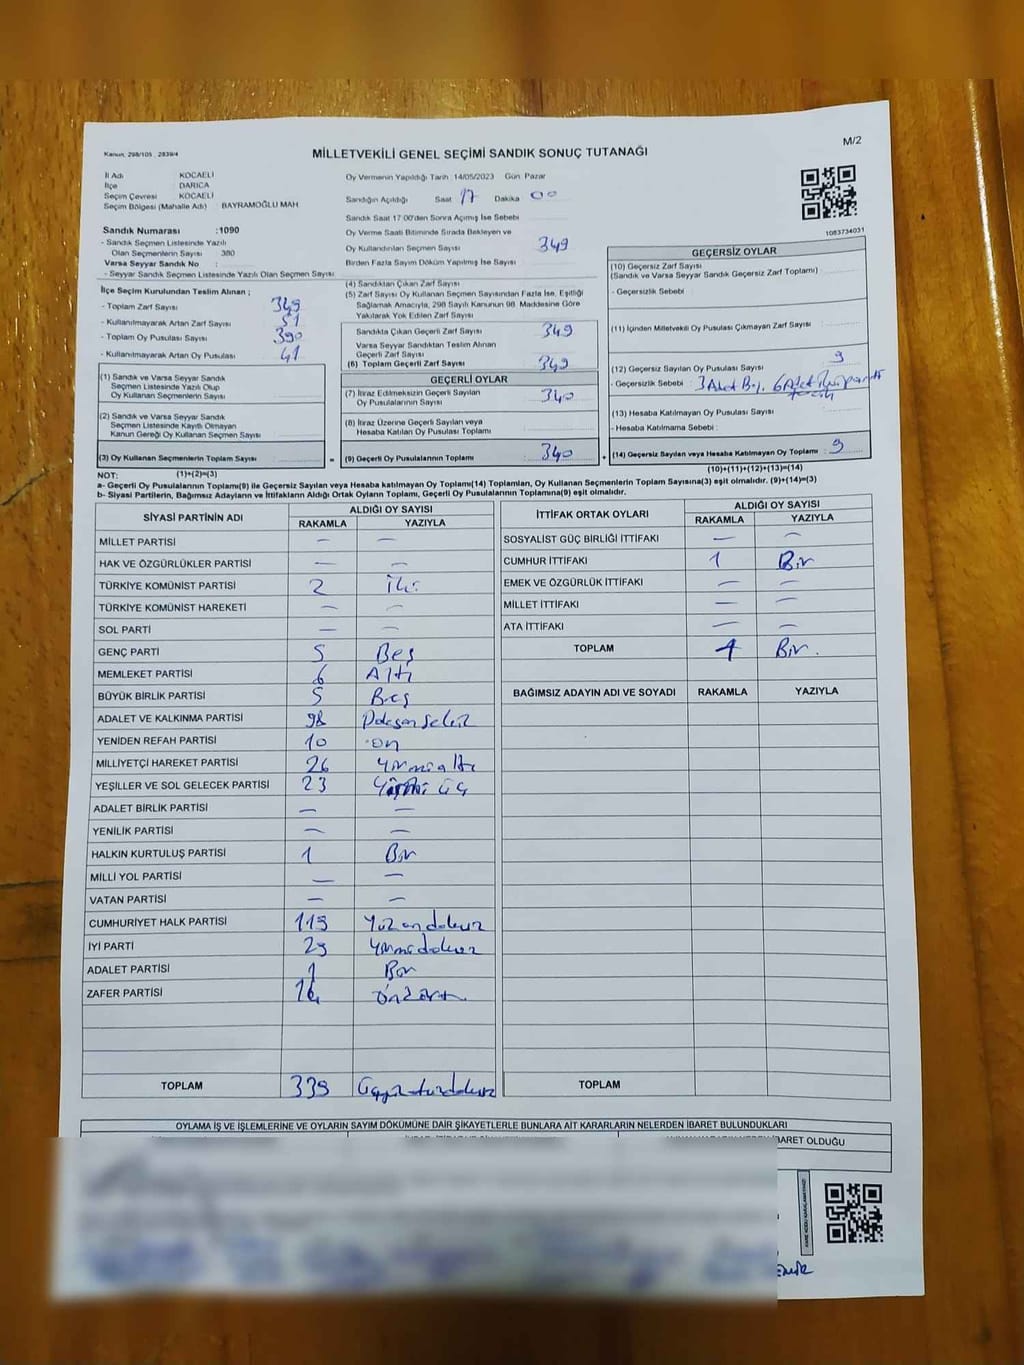 Kanun, 298/105 , 2839/4
M/2
MİLLETVEKİLİ GENEL SEÇİMİ SANDIK SONUÇ TUTANAĞI
İl Adı : KOCAELİ
İlçe : DARICA
Seçim Çevresi : KOCAELİ
Seçim Bölgesi (Mahalle Adı) : BAYRAMOĞLU MAH
Sandık Numarası :1090
- Sandık Seçmen Listesinde Yazılı
Olan Seçmenlerin Sayısı 380
Varsa Seyyar Sandık No :
- Seyyar Sandık Seçmen Listesinde Yazılı Olan Seçmen Sayısı :
Oy Vermenin Yapıldığı Tarih 14/05/2023 Gün Pazar
Sandığın Açıldığı Saat 17 Dakika 00
Sandık Saat 17:00'den Sonra Açılmış İse Sebebi
Oy Verme Saati Bitiminde Sırada Bekleyen ve
Oy Kullandırılan Seçmen Sayısı 349
Birden Fazla Sayım Döküm Yapılmış İse Sayısı
1083734031
İlçe Seçim Kurulundan Teslim Alınan ;
- Toplam Zarf Sayısı : 349
- Kullanılmayarak Artan Zarf Sayısı : 51
- Toplam Oy Pusulası Sayısı : 390
- Kullanılmayarak Artan Oy Pusulası : 41
(1) Sandık ve Varsa Seyyar Sandık
Seçmen Listesinde Yazılı Olup
Oy Kullanan Seçmenlerin Sayısı :
(2) Sandık ve Varsa Seyyar Sandık
Seçmen Listesinde Kayıtlı Olmayan
Kanun Gereği Oy Kullanan Seçmen Sayısı :
(3) Oy Kullanan Seçmenlerin Toplam Sayısı :
(1)+(2)=(3)
(4) Sandıktan Çıkan Zarf Sayısı :
(5) Zarf Sayısı Oy Kullanan Seçmen Sayısından Fazla İse, Eşitliği
Sağlamak Amacıyla, 298 Sayılı Kanunun 98. Maddesine Göre
Yakılarak Yok Edilen Zarf Sayısı :
Sandıkta Çıkan Geçerli Zarf Sayısı : 349
Varsa Seyyar Sandıktan Teslim Alınan
Geçerli Zarf Sayısı :
(6) Toplam Geçerli Zarf Sayısı : 349
GEÇERLİ OYLAR
(7) İtiraz Edilmeksizin Geçerli Sayılan
Oy Pusulalarının Sayısı : 340
(8) İtiraz Üzerine Geçerli Sayılan veya
Hesaba Katılan Oy Pusulası Toplamı :
= (9) Geçerli Oy Pusulalarının Toplamı : 340
GEÇERSİZ OYLAR
(10) Geçersiz Zarf Sayısı
(Sandık ve Varsa Seyyar Sandık Geçersiz Zarf Toplamı) :
- Geçersizlik Sebebi :
(11) İçinden Milletvekili Oy Pusulası Çıkmayan Zarf Sayısı :
(12) Geçersiz Sayılan Oy Pusulası Sayısı : 9
- Geçersizlik Sebebi : 3 Adet Boş, 6 Adet
(13) Hesaba Katılmayan Oy Pusulası Sayısı :
- Hesaba Katılmama Sebebi :
+ (14) Geçersiz Sayılan veya Hesaba Katılmayan Oy Toplamı : 9
(10)+(11)+(12)+(13)=(14)
NOT:
a- Geçerli Oy Pusulalarının Toplamı(9) ile Geçersiz Sayılan veya Hesaba Katılmayan Oy Toplamı(14) Toplamları, Oy Kullanan Seçmenlerin Toplam Sayısına(3) eşit olmalıdır. (9)+(14)=(3)
b- Siyasi Partilerin, Bağımsız Adayların ve İttifakların Aldığı Ortak Oyların Toplamı, Geçerli Oy Pusulalarının Toplamına(9) eşit olmalıdır.
SİYASİ PARTİNİN ADI ALDIĞI OY SAYISI
RAKAMLA YAZIYLA
MİLLET PARTİSİ — —
HAK VE ÖZGÜRLÜKLER PARTİSİ — —
TÜRKİYE KOMÜNİST PARTİSİ 2 İki
TÜRKİYE KOMÜNİST HAREKETİ — —
SOL PARTİ — —
GENÇ PARTİ 5 Beş
MEMLEKET PARTİSİ 6 Altı
BÜYÜK BİRLİK PARTİSİ 5 Beş
ADALET VE KALKINMA PARTİSİ 98 Doksan Sekiz
YENİDEN REFAH PARTİSİ 10 on
MİLLİYETÇİ HAREKET PARTİSİ 26 Yirmi altı
YEŞİLLER VE SOL GELECEK PARTİSİ 23 Yirmi üç
ADALET BİRLİK PARTİSİ — —
YENİLİK PARTİSİ — —
HALKIN KURTULUŞ PARTİSİ 1 Bir
MİLLİ YOL PARTİSİ — —
VATAN PARTİSİ — —
CUMHURİYET HALK PARTİSİ 119 Yüz on dokuz
İYİ PARTİ 29 Yirmi dokuz
ADALET PARTİSİ 1 Bir
ZAFER PARTİSİ 14
TOPLAM 339 Üçyüz otuz dokuz
İTTİFAK ORTAK OYLARI ALDIĞI OY SAYISI
RAKAMLA YAZIYLA
SOSYALİST GÜÇ BİRLİĞİ İTTİFAKI — —
CUMHUR İTTİFAKI 1 Bir
EMEK VE ÖZGÜRLÜK İTTİFAKI — —
MİLLET İTTİFAKI — —
ATA İTTİFAKI — —
TOPLAM 1 Bir.
BAĞIMSIZ ADAYIN ADI VE SOYADI RAKAMLA YAZIYLA
TOPLAM
OYLAMA İŞ VE İŞLEMLERİNE VE OYLARIN SAYIM DÖKÜMÜNE DAİR ŞİKAYETLERLE BUNLARA AİT KARARLARIN NELERDEN İBARET BULUNDUKLARI
İBARET OLDUĞU